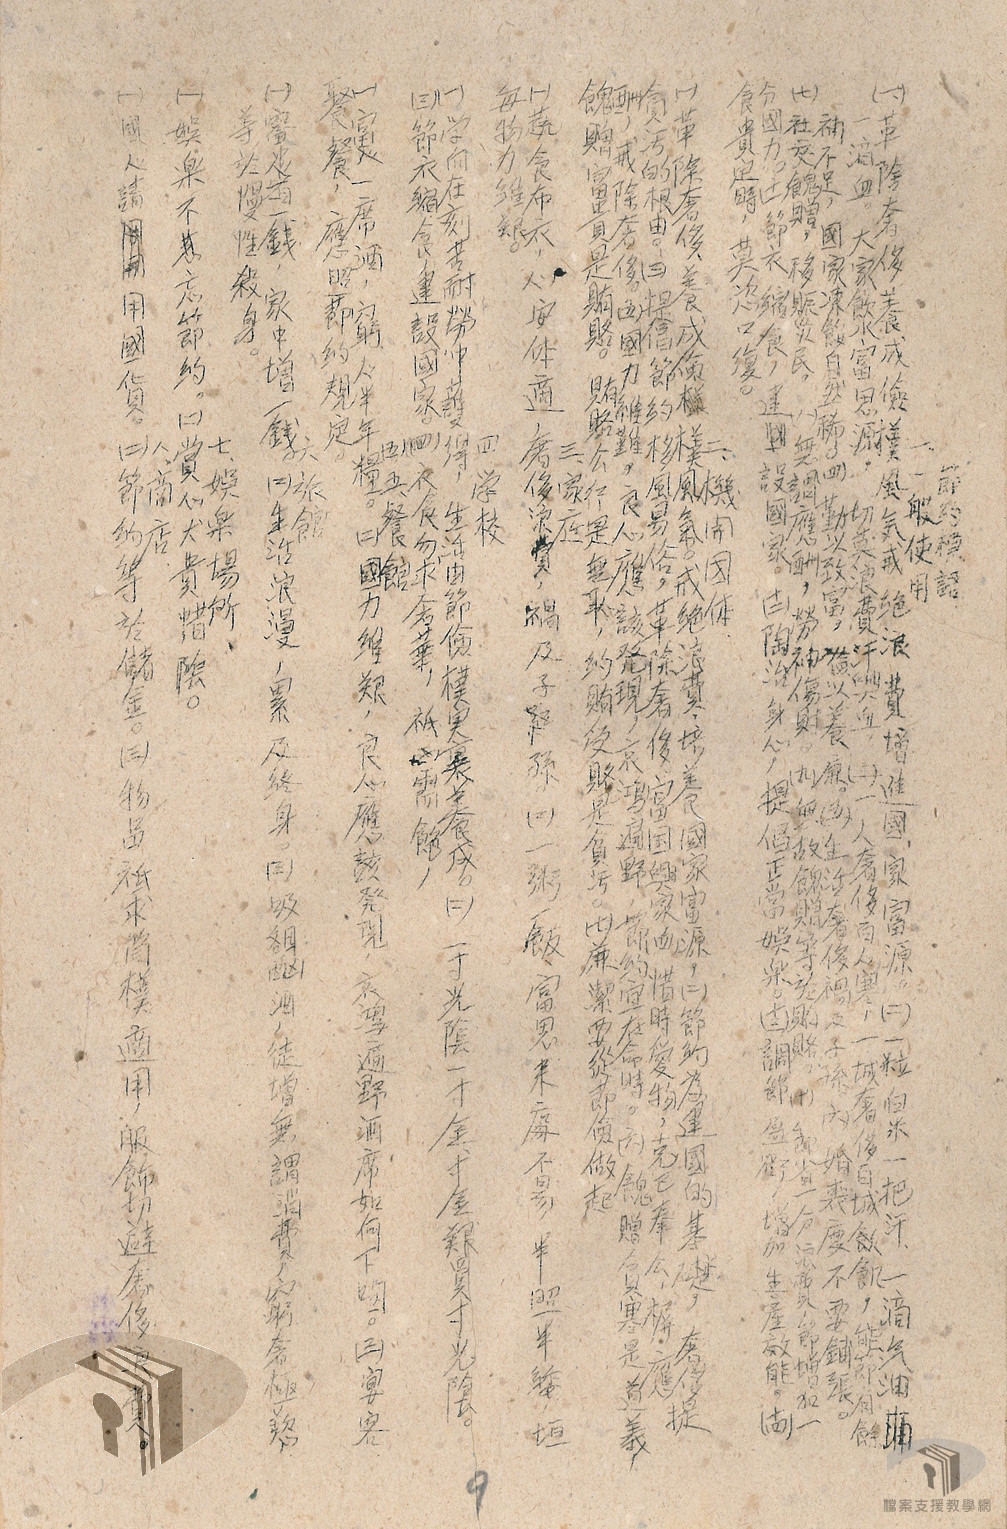 節約標語
一、一般使用
㈠革除奢侈養成儉樸風気戒絕浪費增進國家富源。㈡一粒白米一把汗、一滴汽油
一滴血。大家飲水富思源，切莫浪費汗與血，㈢一人奢侈百人寒，一城奢侈百城飲飢，能節有餘
補不足，國家凍餒自然稀。㈣勤以致富，儉以養廉。㈤生活奢侈禍及子孫㈥婚喪慶不要鋪張。
㈦社交餽贈，移賑災民，㈧無謂應酬，勞神傷財。㈨無故餽贈等於賄賂。㈩節省一分消費即增加一
分國力。㈩㈠節衣縮食，建設國家。㈩㈡陶冶身心，提倡正當娛樂。㈩㈢調節盈虧，增加生產效能。㈩㈣
食貴定時，莫恣口腹。
二、機関團体
㈠革除奢侈、養成儉樸風氣。戒絕浪費、培養國家富源，㈡節約為建國的基礎，奢侈是
貪污的根由。㈢提倡節約移風易俗，革除奢侈、富国興家㈣惜時愛物，克己奉公、摒應
酬，戒除奢侈。㈤國力維難，良心應該発現，哀鴻遍野，節約宜在命時。㈥餽贈貧寒是道義，
餽贈富貴是賄賂。賄賂公行是無恥，納賄受賂是貪污。㈦廉潔要從節儉做起
三、家庭
㈠蔬食布衣，心安体適，奢侈浪費，禍及子孫。㈡一粥一飯、富思来處不易，半思半縷，恒
每物力維艱。
四、学校
㈠学问在刻苦耐勞中獲得，生活由節儉樸実裏養成。㈡一寸光陰一寸金，寸金難買寸光陰。
㈢節衣縮食建設國家。㈣衣食勿求奢華，祗需飽，
五、餐館
㈠富裏一席酒，窮人半年糧。㈡國力維艱，良心應該発現，哀鴻遍野酒席如何下嚥。㈢宴客
聚餐，應照節約規定。
六、旅館
㈠奢費一錢，家中增一錢㈡生活浪漫，累及終身。㈢吸烟酗酒，徒增無謂消費，窮奢極慾，
等於慢性殺身。
七、娛樂場所
㈠娛樂不若忘節約。㈡賞心大貴惜陰。
八、商店
㈠國人請用國貨。㈡節約等於儲金。㈢物品祗求简樸適用，服飾切避奢侈浪費。
9
檔案支援教學網